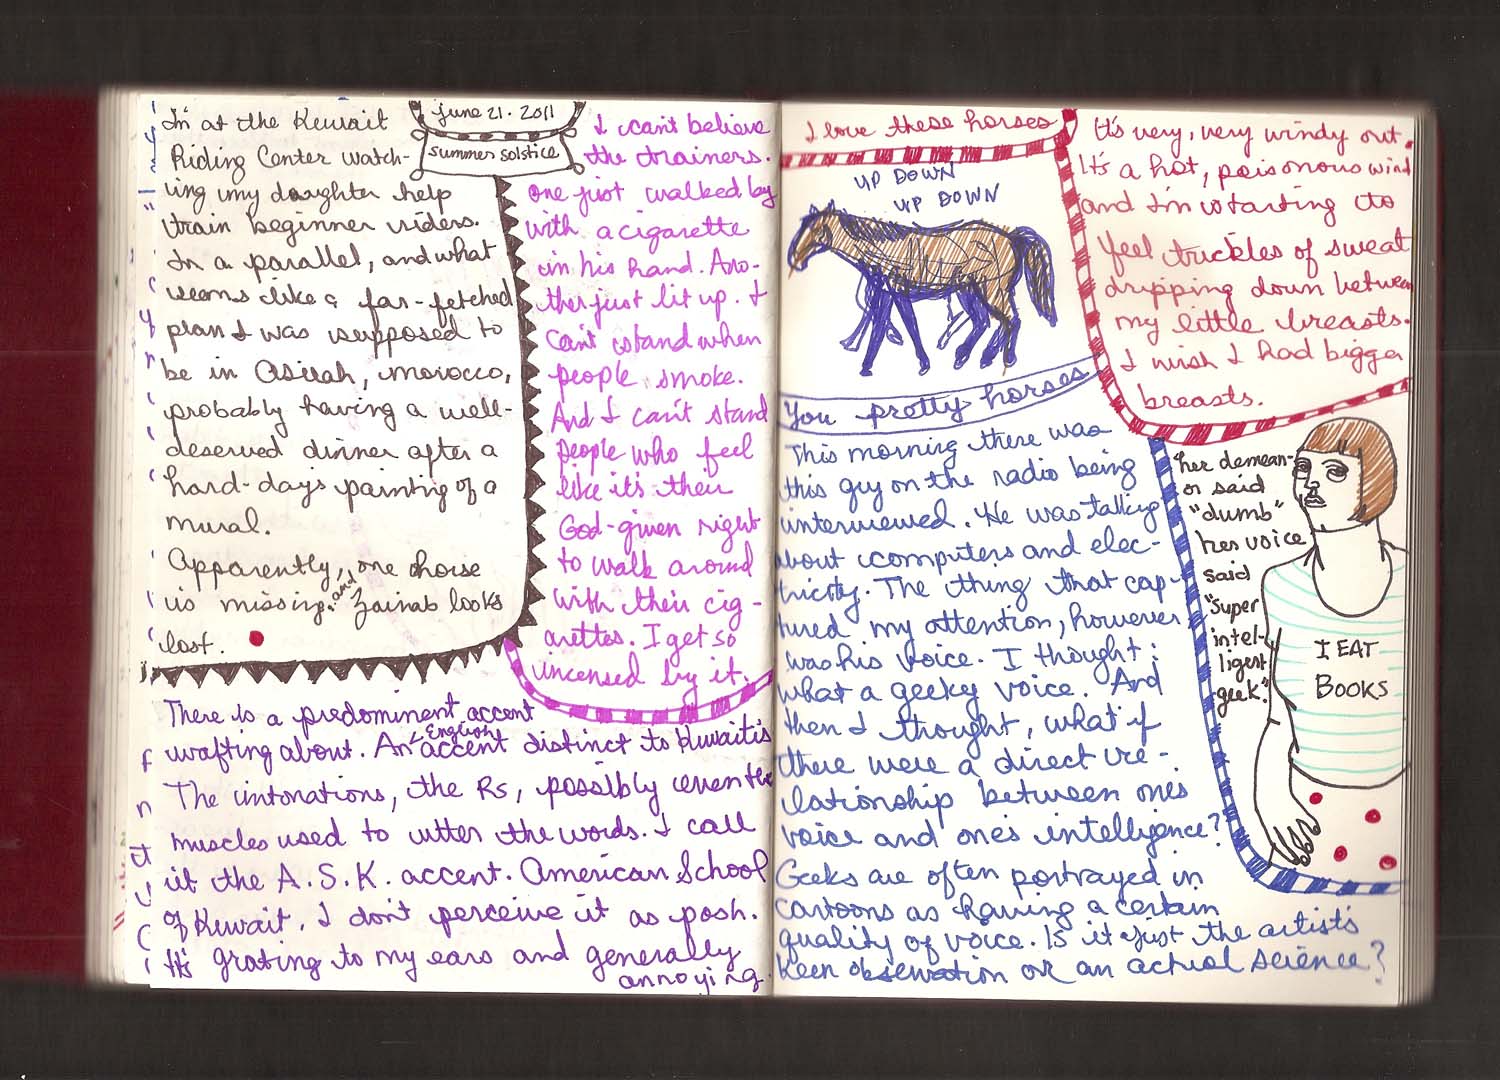 June 21. 2011
summer solstice
I'm at the Kuwait
Riding Center watch-
ing my daughter help
train beginner riders.
In a parallel, and what
seems like a far-fetched
plan I was supposed to
be in Asilah, Morocco,
probably having a well-
deserved dinner after a
hard-days painting of a
mural.
Apparently, one horse
is missing, and Zainab looks
lost.
I can't believe
the trainers.
one just walked by
with a cigarette
in his hand. Ano-
ther just lit up. I
can't stand when
people smoke.
And I can't stand
people who feel
like it's their
God-given right
to walk around
with their cig-
arettes. I get so
incensed by it.
There is a predominent accent
wafting about. An English accent distinct to Kuwaitis
The intonations, the Rs, possibly even the
muscles used to utter the words. I call
it the A.S.K. accent. American School
of Kuwait. I don't perceive it as posh.
It's grating to my ears and generally
annoying.
I love these horses
UP DOWN
UP DOWN
You pretty horses
It's very, very windy out.
It's a hot, poisonous wind
and I'm starting to
feel trickles of sweat
dripping down between
my little breasts.
I wish I had bigger
breasts.
This morning there was
this guy on the radio being
interviewed. He was talking
about computers and elec-
tricity. The thing that cap-
tured my attention, however
was his voice. I thought:
what a geeky voice. And
then I thought, what if
there were a direct re-
lationship between ones
voice and one's intelligence?
Geeks are often portrayed in
cartoons as having a certain
quality of voice. Is it just the artist's
keen observation or an actual science?
her demean-
or said
"dumb"
her voice
said
"super
intel-
ligent
geek."
I EAT
BOOKS